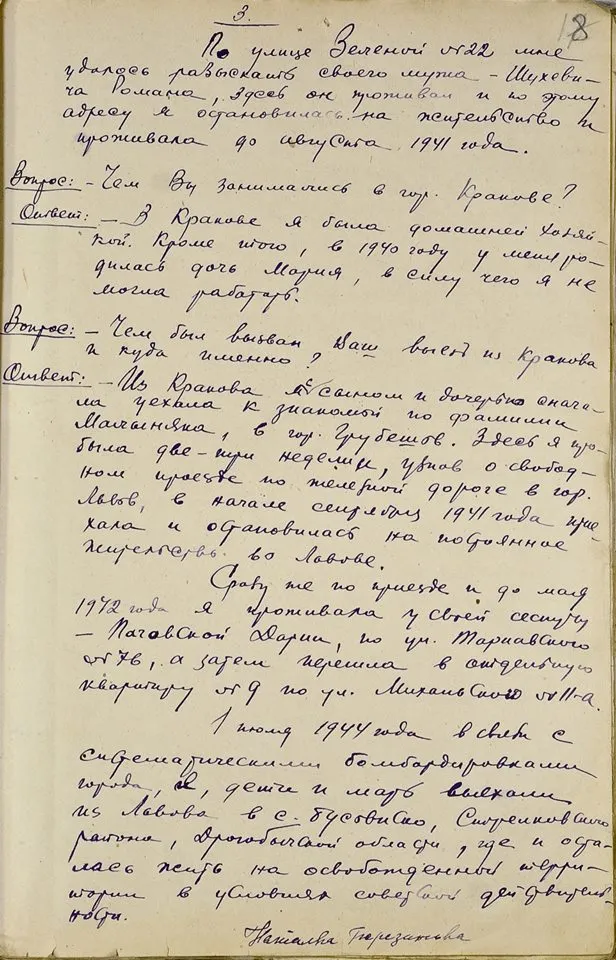 3.
18
По улице Зеленой № 22 мне
удалось разыскать своего мужа – Шухеви-
ча Романа, здесь он проживал и по этому
адресу я остановилась на жительство и
проживала до августа 1941 года.
Вопрос: – Чем Вы занимались в гор. Кракове?
Ответ: – В Кракове я была домашней хозяй-
кой. Кроме того, в 1940 году у меня ро-
дилась дочь Мария, в силу чего я не
могла работать.
Вопрос: – Чем был вызван Ваш выезд из Кракова
и куда именно?
Ответ: – Из Кракова я с сыном и дочерью снача-
ла уехала к знакомой по фамилии
в гор. Грубешов. Здесь я про-
была две-три недели, узнав о свобод-
ном проезде по железной дороге в гор.
Львов, в начале сентября 1941 года прие-
хала и остановилась на постоянное
жительство во Львове.
Сразу же по приезде и до мая
1942 года я проживала у своей сестры
– Пачовской Дарии, по ул. Тарнавского
№ 76, а затем перешла в отдельную
квартиру № 9 по ул. № 11-а.
1 июля 1944 года в связи с
систематическими бомбардировками
города, я, дети и мать выехали
из Львова в с. Бусовиско, Стрелковского
района, Дрогобычской области, где и оста-
лась жить на освобожденной терри-
тории в условиях советской действитель-
ности.
Наталка Березинська